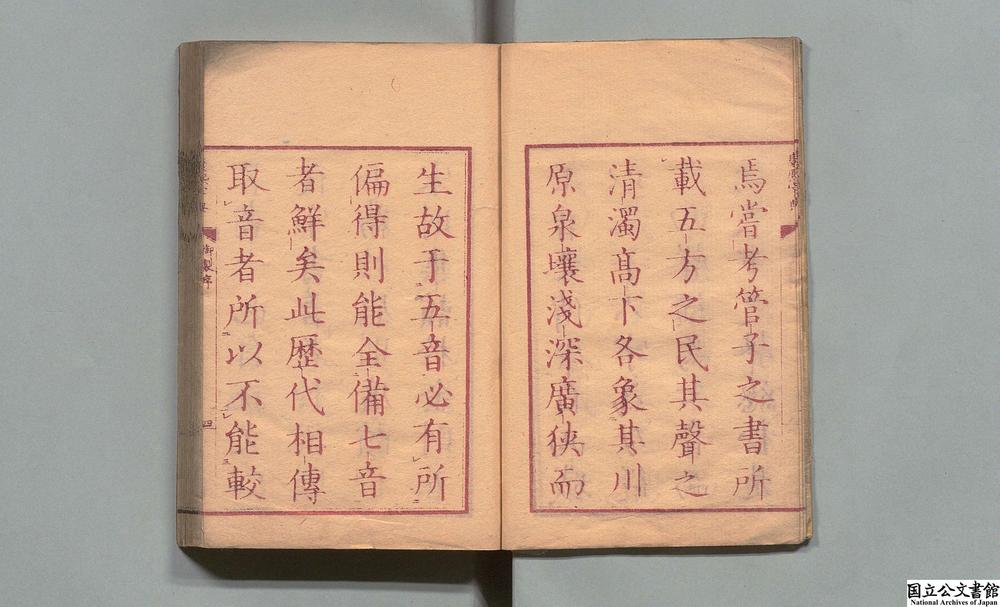 焉嘗考管子之書所
載五方之民其聲之
清濁高下各象其川
原泉壤淺深廣狹而
生故于五音必有所
偏得則能全備七音
者鮮矣此歷代相傳
取音者所以不能較
御製序
四
国立公文書館
National Archives of Japan